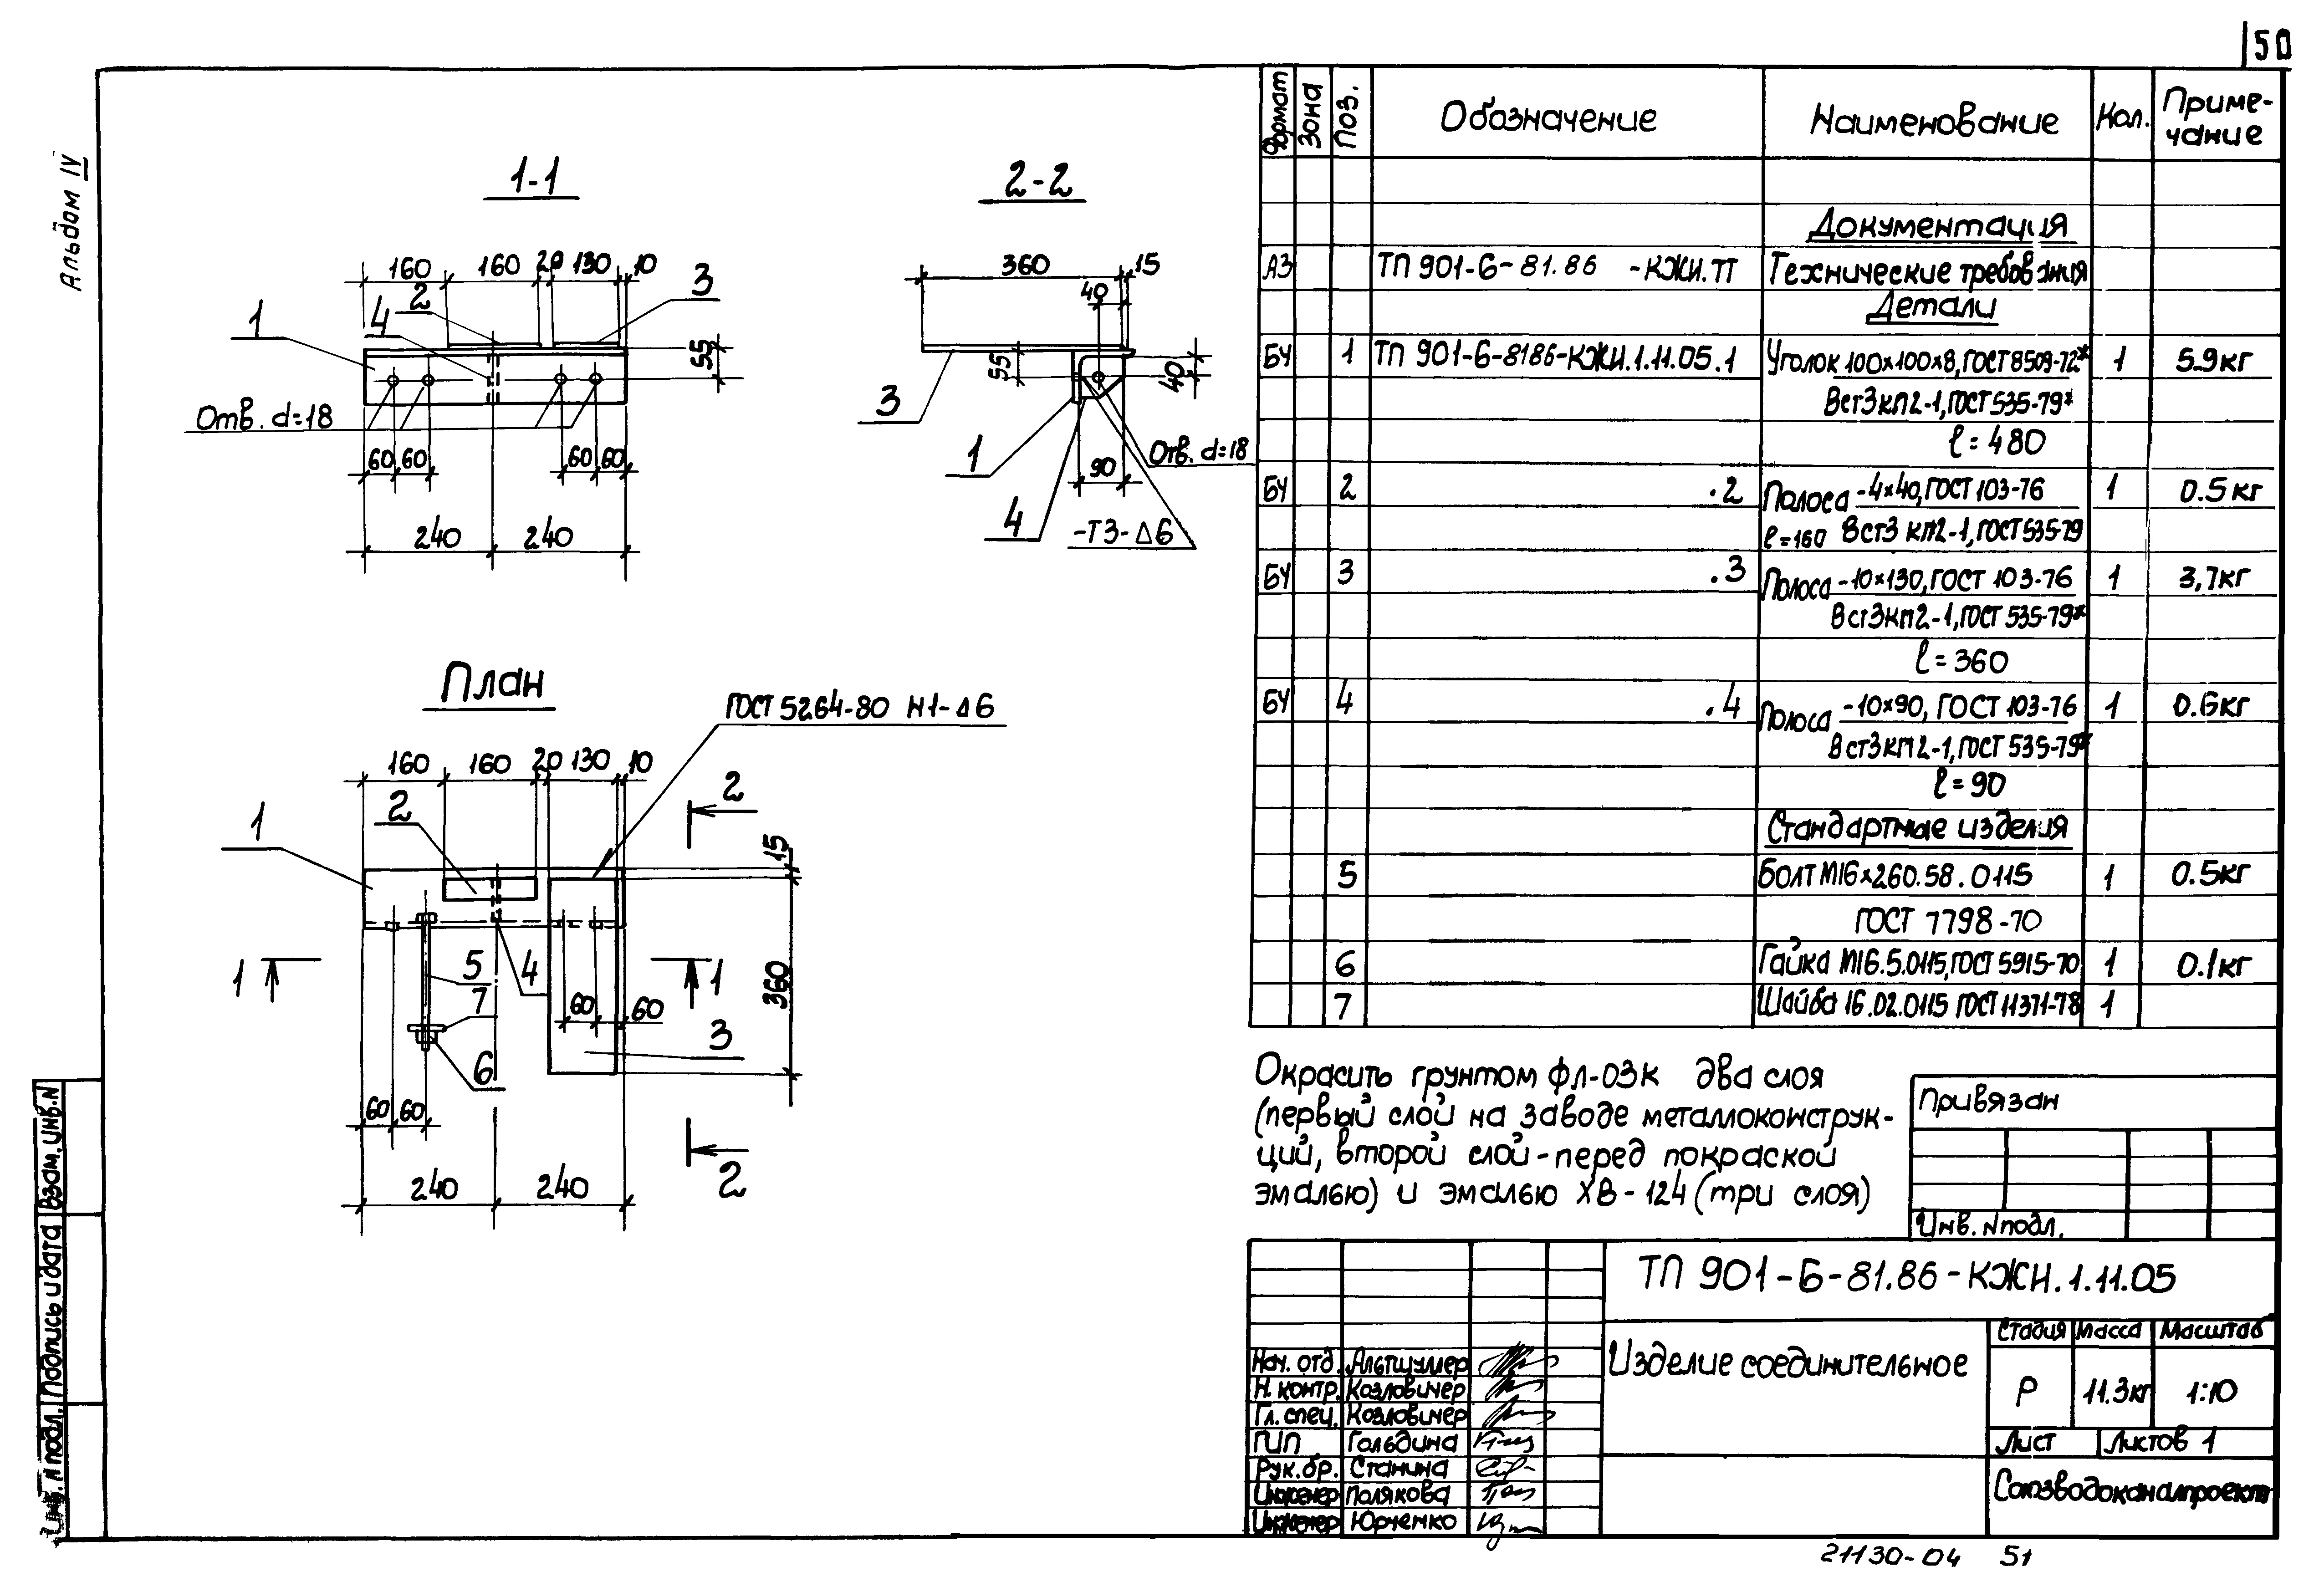 50
Альбом IV
1-1
160 160 20 130 10
1 4 2 3
55
Отв. d=18
60 60 60 60
240 240
2-2
360 15
40
55
40
3
1
4
90
Отв. d=18
-Т3-Δ6
План
ГОСТ 5264-80 Н1-Δ6
160 160 20 130 10
2
1
2
15
360
1
5
7
6
4
1
60 60
3
60 60
2
240 240
Формат Зона Поз. Обозначение Наименование Кол. Приме-
чание
Документация
А3 ТП 901-6-81.86 -КЖИ.ТТ Технические требования
Детали
БЧ 1 ТП 901-6-8186-КЖИ.1.11.05.1 Уголок 100х100х8, ГОСТ 8509-72* 1 5.9кг
ВСт3кп2-1, ГОСТ 535-79*
ℓ=480
БЧ 2 .2 Полоса -4х40, ГОСТ 103-76 1 0.5кг
ℓ=160 ВСт3 кп2-1, ГОСТ 535-79
БЧ 3 .3 Полоса -10х130, ГОСТ 103-76 1 3,7кг
ВСт3кп2-1, ГОСТ 535-79*
ℓ=360
БЧ 4 .4 Полоса -10х90, ГОСТ 103-76 1 0.6кг
ВСт3кп2-1, ГОСТ 535-79*
ℓ=90
Стандартные изделия
5 Болт М16х260.58.0115 1 0.5кг
ГОСТ 7798-70
6 Гайка М16.5.0115, ГОСТ 5915-70 1 0.1кг
7 Шайба 16.02.0115 ГОСТ 11371-78 1
Окрасить грунтом ФЛ-03К два слоя
(первый слой на заводе металлоконструк-
ций, второй слой-перед покраской
эмалью) и эмалью ХВ-124 (три слоя)
Привязан
Инв. N подл.
ТП 901-6-81.86-КЖИ.1.11.05
Изделие соединительное
Стадия Масса Масштаб
Р 11.3кг 1:10
Лист Листов 1
Союзводоканалпроект
Нач. отд. Альтшуллер
Н. контр. Козловичер
Гл. спец. Козловичер
ГИП Гольдина
Рук. бр. Станина
Инженер Полякова
Инженер Юрченко
Инв. N подл. Подпись и дата Взам. инв. N
21130-04 51